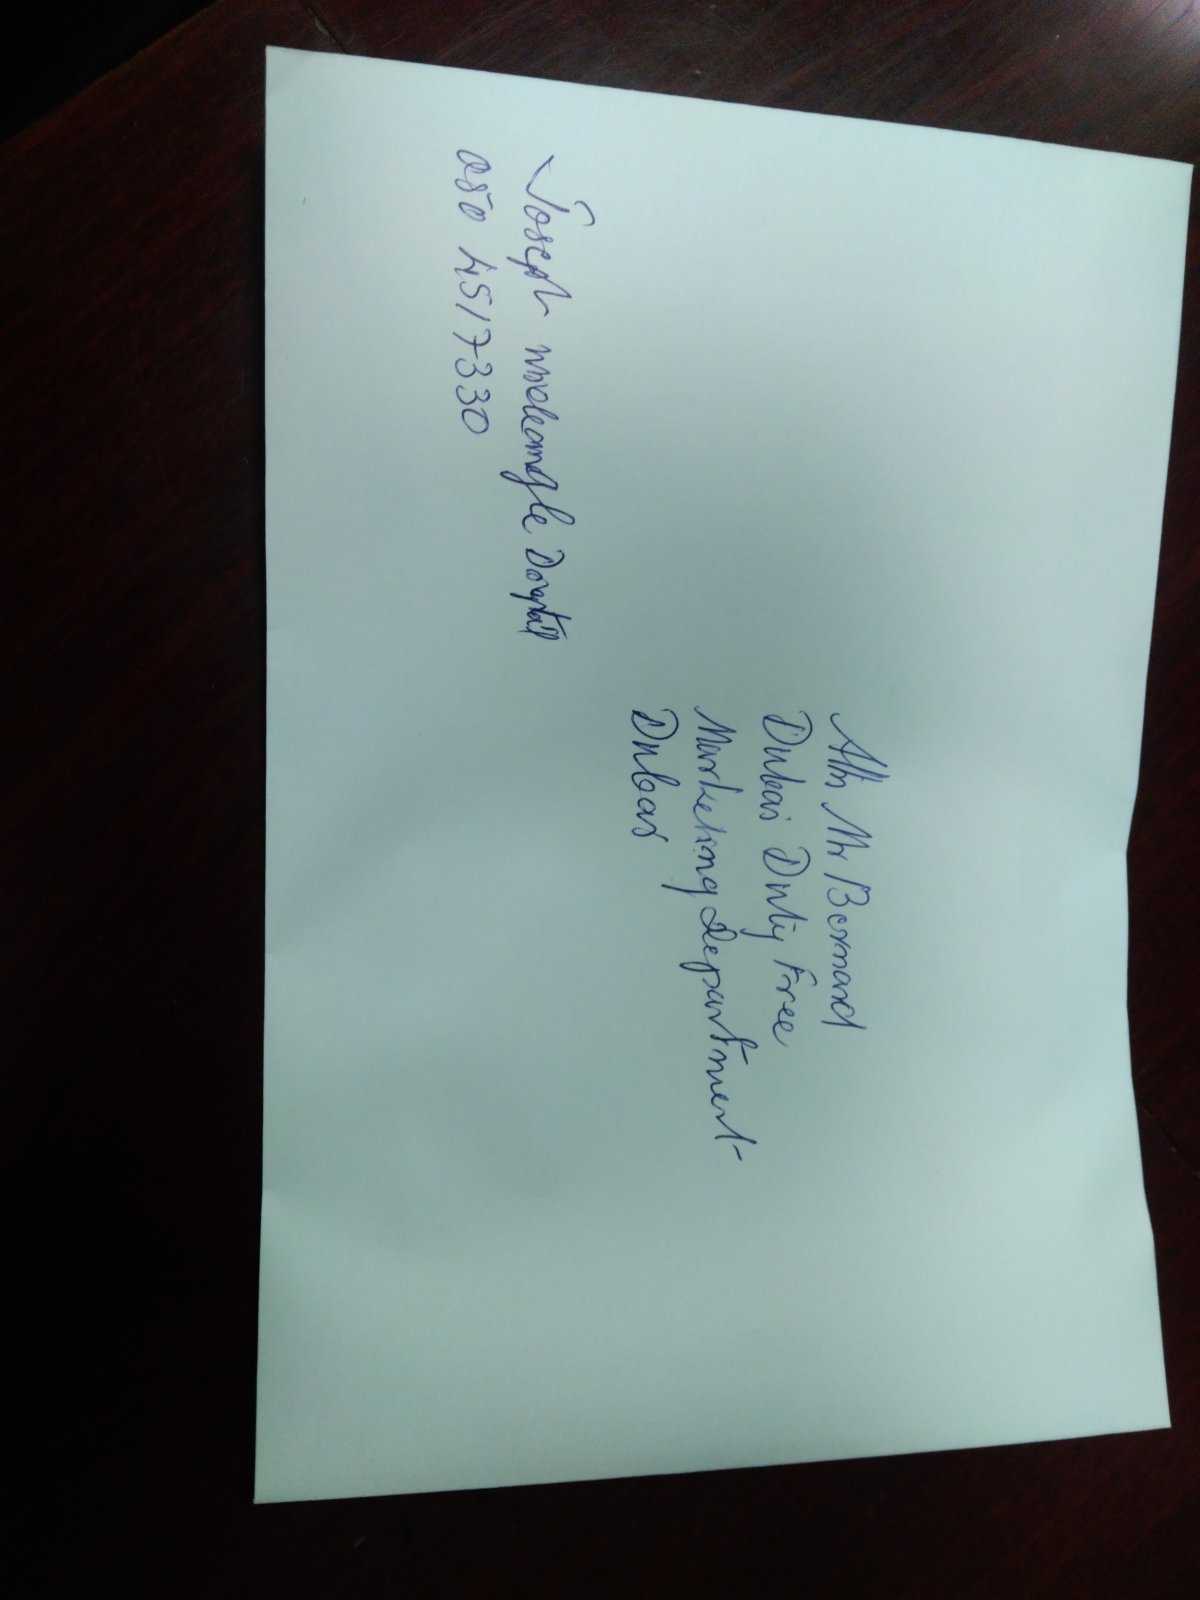 Attn Mr Bernard
Dubai Duty Free
Marketing Department
Dubai
Joseph
050 4517330